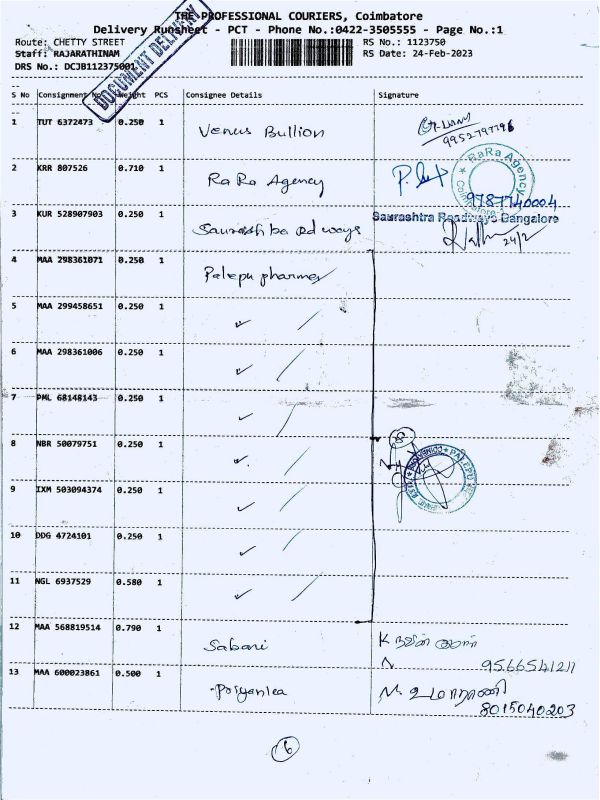 THE PROFESSIONAL COURIERS, Coimbatore
Delivery Runsheet - PCT - Phone No.:0422-3505555 - Page No.:1
Route: CHETTY STREET
RS No.: 1123750
Staff: RAJARATHINAM
RS Date: 24-Feb-2023
DRS No.: DCJB112375001
DOCUMENT DELIVERY
S No Consignment No. Weight PCS Consignee Details Signature
1 TUT 6372473 0.250 1 Venus Bullion
9952797796
2 KRR 807526 0.710 1 RaRa Agency
RaRa Agency
Coimbatore
9787740004
3 KUR 528907903 0.250 1
Saurashtra Roadways Bangalore
24/2
4 MAA 298361071 0.250 1 Palepu pharma
5 MAA 299458651 0.250 1 ✓
6 MAA 298361006 0.250 1 ✓
7 PML 68148143 0.250 1 ✓
8 NBR 50079751 0.250 1 ✓
8
PALEPU
9 IXM 503094374 0.250 1 ✓
10 DDG 4724101 0.250 1 ✓
11 NGL 6937529 0.580 1 ✓
12 MAA 568819514 0.790 1 Sabari
9566541211
13 MAA 600023861 0.500 1 Priyanka
உமாராணி
8015040203
6